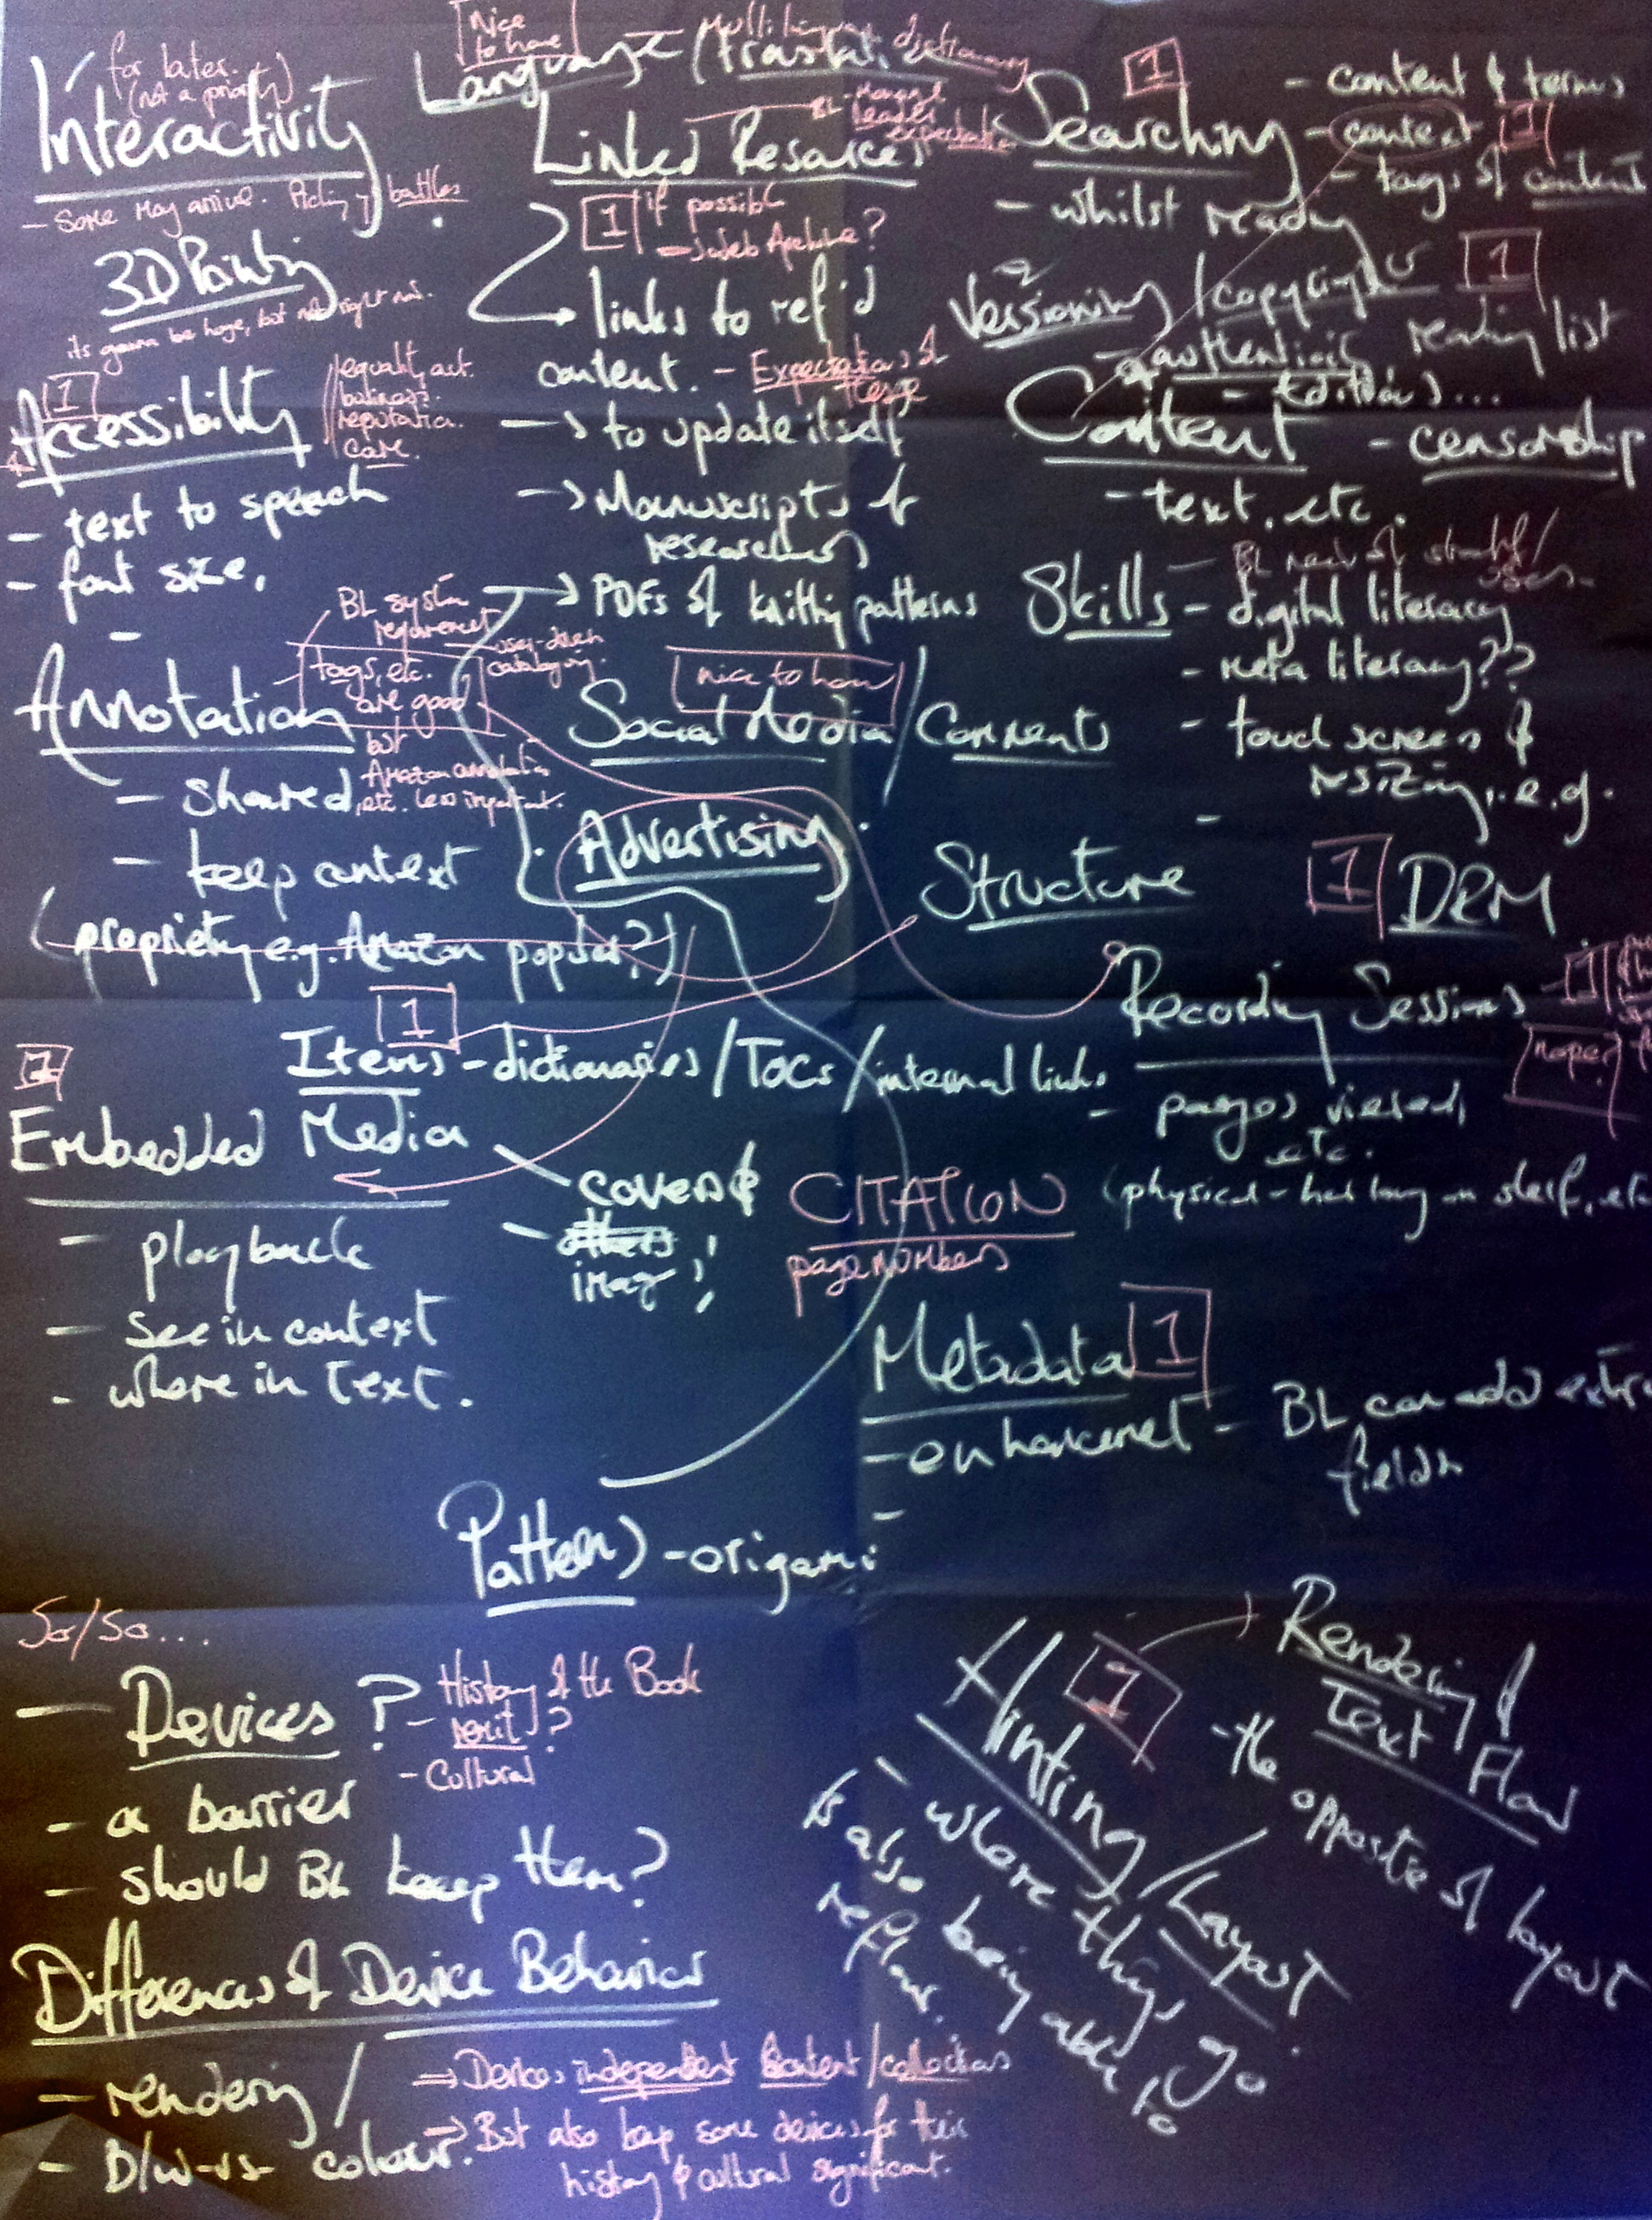 for later.
(not a priority)
Interactivity
- Some may arrive. Picking battles
3D Printing
its gonna be huge, but not right now.
1
Accessibility
equality act.
business?
reputation.
Care.
- text to speech
- font size.
-
Annotation
BL system
requirement
user-driven
catalogue.
tags, etc.
are good
but
Amazon annotation
etc. less important.
- shared
- keep context
(propriety e.g. Amazon popular?)
Nice
to have
Language / Translation
- Multilingual dictionary
Linked Resources
BL - Manage
reader
expectation
1 if possible
- Web Archive?
links to ref'd
content. - Expectations of
→ to update itself
→ Manuscripts &
researchers
→ PDFs of knitting patterns
nice to have
Social Media / Comments
Advertising
1
Searching
- content & terms
- context 1
- tags of content
- whilst reading
Versioning / copyright 1
authenticity, reading list
- editions...
Content - censorship
- text, etc.
Skills
- digital literacy
- meta literacy??
- touch screens &
resizing, e.g.
-
Structure
1 DRM
Recording Sessions
1
nope?
- pages viewed,
etc.
(physical - how long on shelf, etc
1
Items - dictionaries / TOCs / internal links
1
Embedded Media
- playback
- see in context
- where in text.
- covers &
- others
images
CITATION
page numbers
Metadata 1
- enhanced - BL can add extra
fields
-
Patterns - origami
So/So...
- Devices?
- History of the Book
- Cultural
- a barrier
- should BL keep them?
Differences of Device Behaviour
- rendering /
- B/W -vs- colour.
⇒ Device independent content / collections
⇒ But also keep some devices for their
history & cultural significant.
1
Hinting / Layout
- where things go
is also being able to
reflow.
Rendering &
Text Flow
- the opposite of layout